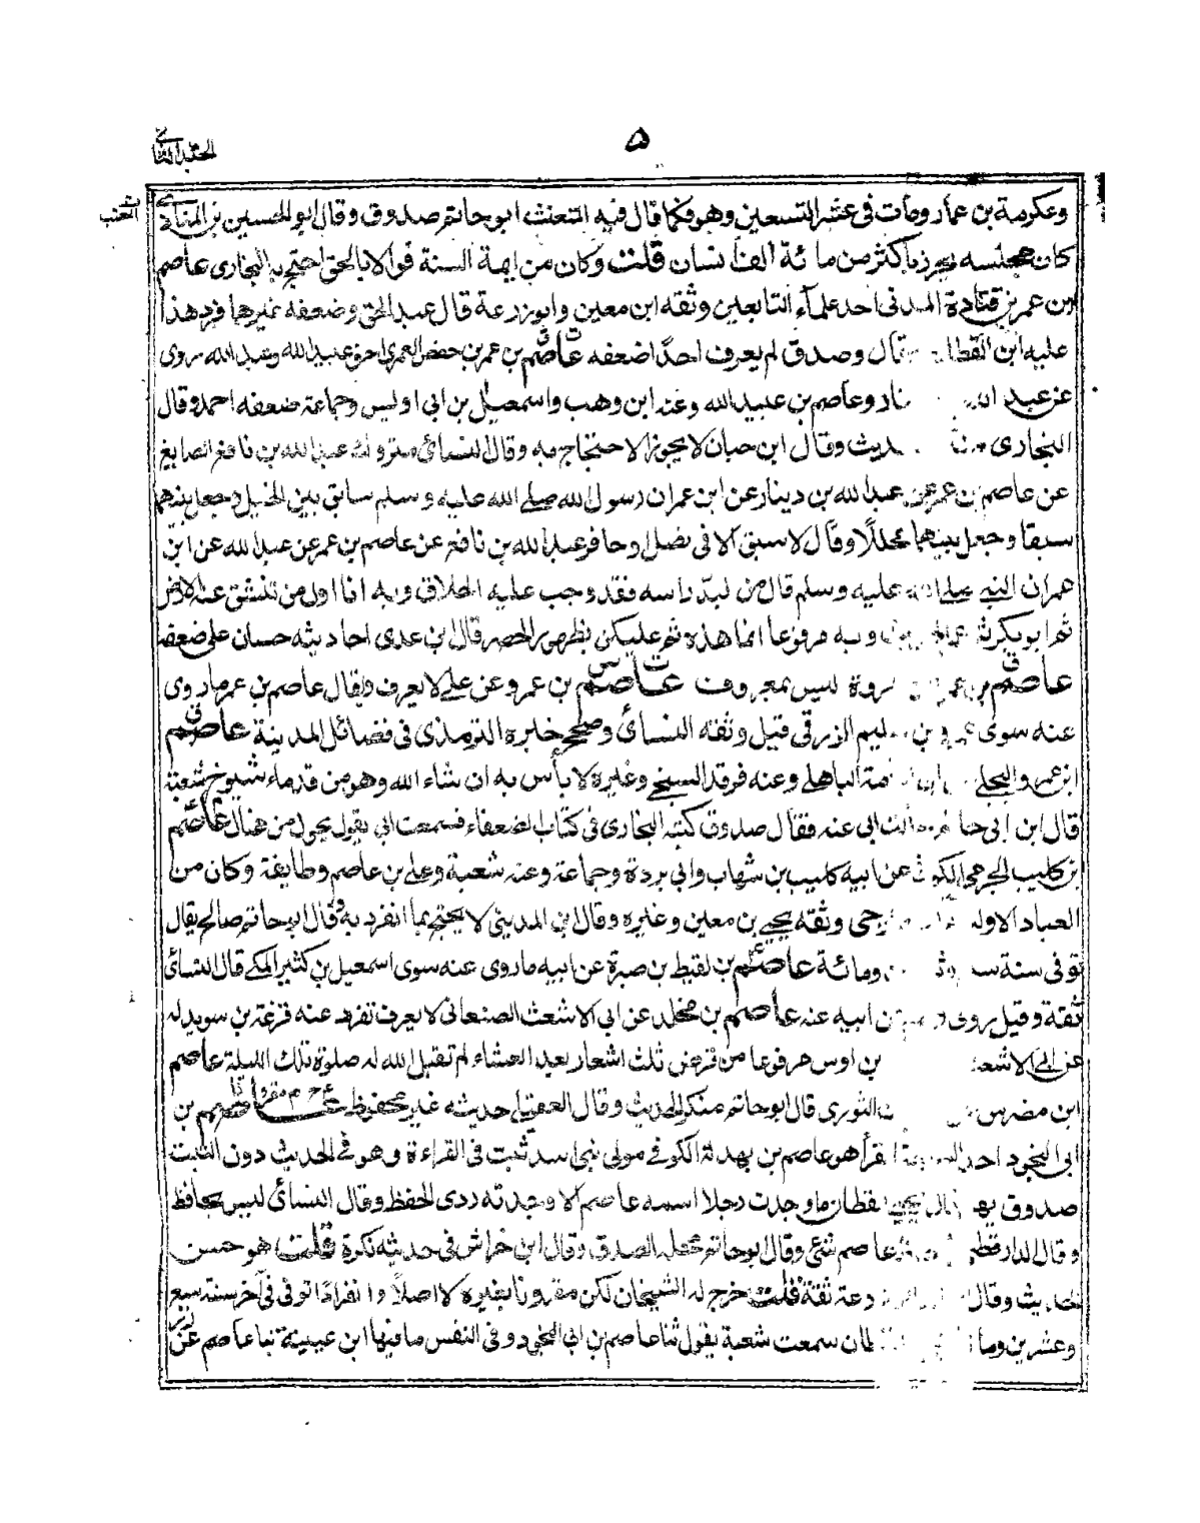 ٥
وعكرمة بن عمار ومات فى عشر التسعين وهو فكما قال فيه المتعنت ابو حاتم صدوق وقال ابو الحسين بن المنادى
كان مجلسه يحرز باكثر من مائة الف انسان قلت وكان من ايمة السنة قوالا بالحق احتج به البخارى عاصم
ابن عمر بن قتادة المدنى احد علماء التابعين وثقه ابن معين وابو زرعة قال عبد الحق وضعفه غيرهما فرد هذا
عليه ابن القطان وقال وصدق لم يعرف احدا ضعفه عاصم بن عمر بن حفص العمرى اخو عبيد الله وعبد الله روى
عن عبد الله نار وعاصم بن عبيد الله وعنه ابن وهب واسمعيل بن ابى اويس وجماعة ضعفه احمد وقال
البخارى ديث وقال ابن حبان لا يجوز الاحتجاج به وقال النسائى متروك عبد الله بن نافع الصايغ
عن عاصم بن عمر عن عبد الله بن دينار عن ابن عمر ان رسول الله صلى الله عليه وسلم سابق بين الخيل وجعل بينهما
سبقا وجعل بينهما محللا وقال لا سبق الا فى نصل او حافر عبد الله بن نافع عن عاصم بن عمر عن عبد الله عن ابن
عمر ان النبى صلى الله عليه وسلم قال من لبد راسه فقد وجب عليه الحلاق وبه انا اول من تنشق عنه الارض
ثم ابو بكر ثم عمر وبه مرفوعا انما هذه ثم عليكن بظهور الحصر قال ابن عدى احاديثه حسان على ضعفه
عاصم بن عمر روة ليس بمعروف عاصم بن عمرو عن على لا يعرف ويقال عاصم بن عمر ما روى
عنه سوى عمرو بن سليم الزرقى قيل وثقه النسائى وصحح خبره الترمذى فى فضائل المدينة عاصم
ابن عمرو البجلى مة الباهلى وعنه فرقد السبخى وغيره لا بأس به ان شاء الله وهو من قدماء شيوخ شعبة
قال ابن ابى حاتم سالت ابى عنه فقال صدوق كتبه البخارى فى كتاب الضعفاء فسمعت ابى يقول يحول من هنالك عاصم
بن كليب الجرمى الكوفى عن ابيه كليب بن شهاب وابى بردة وجماعة وعنه شعبة وعلى بن عاصم وطايفة وكان من
العباد الاولياء رجى وثقه يحيى بن معين وغيره وقال ابن المدينى لا يحتج بما انفرد به وقال ابو حاتم صالح يقال
توفى سنة ومائة عاصم بن لقيط بن صبرة عن ابيه ما روى عنه سوى اسمعيل بن كثير المكى قال النسائى
ثقة وقيل يروى ن ابيه عنه عاصم بن مخلد عن ابى الاشعث الصنعانى لا يعرف تفرد عنه قزعة بن سويد له
عن ابى الاشعث بن اوس مرفوعا من قرض ثلث اشعار بعد العشاء لم تقبل الله له صلوة تلك الليلة عاصم
ابن مضرس الثورى قال ابو حاتم منكر الحديث وقال العقيلى حديثه غير محفوظ عاصم بن
ابى النجود احد السبعة القرأ هو عاصم بن بهدلة الكوفى مولى بنى اسد ثبت فى القراءة وهو فى الحديث دون الثبت
صدوق يهم قال يحيى القطان ما وجدت رجلا اسمه عاصم الا وجدته ردى الحفظ وقال النسائى ليس بحافظ
وقال الدارقطنى عاصم شئ وقال ابو حاتم محله الصدق وقال ابن خراش فى حديثه نكرة قلت هو حسن
الحديث وقال زرعة ثقة قلت خرج له الشيخان لكن مقرونا بغيره لا اصلا وانفرادا توفى فى آخر سنة سبع
وعشرين وما طان سمعت شعبة يقول ثنا عاصم بن ابى النجود وفى النفس ما فيها ابن عيينة ثنا عاصم عن